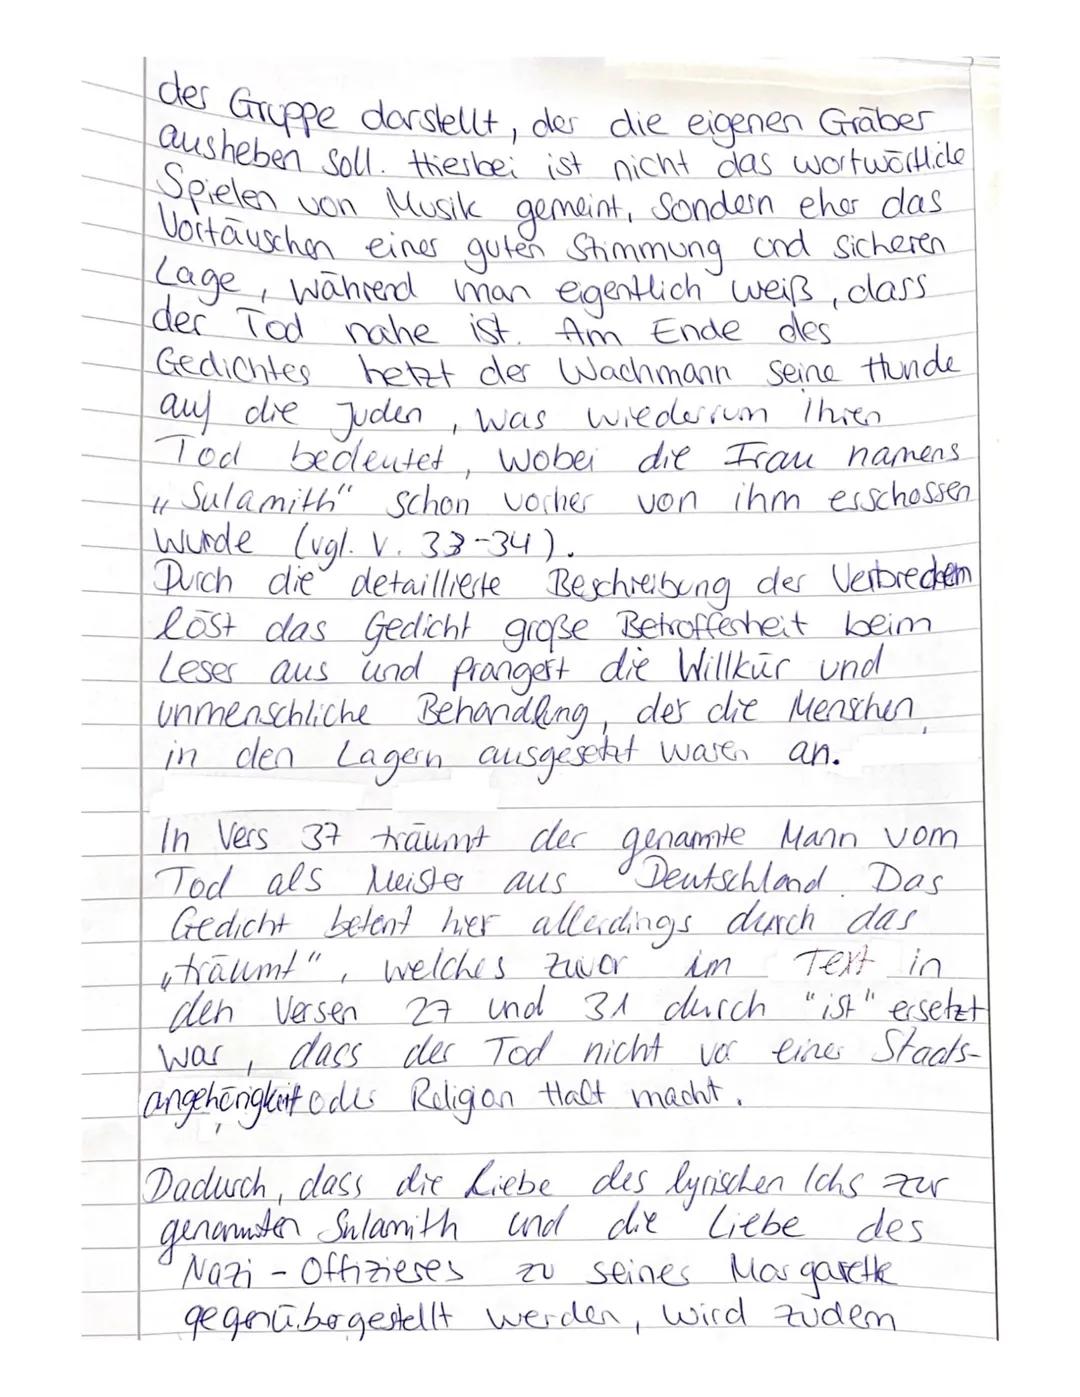 der Gruppe darstellt, der die eigenen Gräber
ausheben soll. Hierbei ist nicht das wortwörtliche
Spielen von Musik gemeint, sondern eher das
Vortäuschen einer guten Stimmung und sicheren
Lage, während man eigentlich weiß, dass
der Tod nahe ist. Am Ende des
Gedichtes hetzt der Wachmann seine Hunde
auf die Juden, was wiederrum ihren
Tod bedeutet, wobei die Frau namens
„Sulamith" schon vorher von ihm erschossen
wurde (vgl. V. 33-34).
Durch die detaillierte Beschreibung der Verbrechen
löst das Gedicht große Betroffenheit beim
Leser aus und prangert die Willkür und
unmenschliche Behandlung, der die Menschen
in den Lagern ausgesetzt waren an.
In Vers 37 träumt der genannte Mann vom
Tod als Meister aus Deutschland. Das
Gedicht betont hier allerdings durch das
„träumt", welches zuvor im Text in
den Versen 27 und 31 durch "ist" ersetzt
war, dass der Tod nicht vor einer Staats-
angehörigkeit oder Religion Halt macht.
Dadurch, dass die Liebe des lyrischen Ichs zur
genannten Sulamith und die Liebe des
Nazi-Offizieres zu seiner Margarethe
gegenübergestellt werden, wird zudem